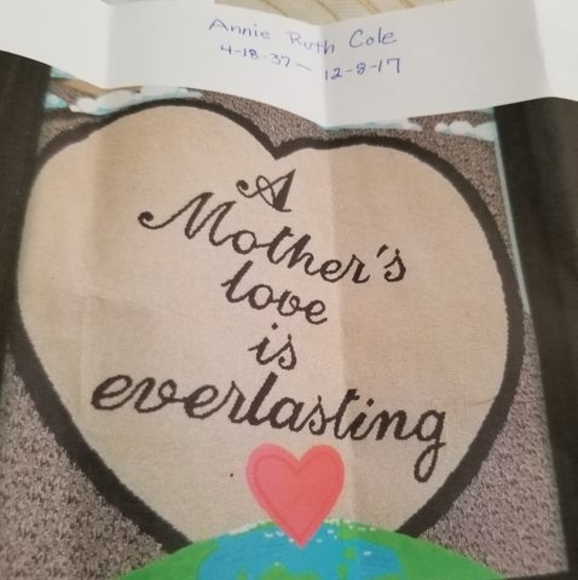 Annie Ruth Cole
4-18-37 — 12-8-17
A
Mother's
love
is
everlasting